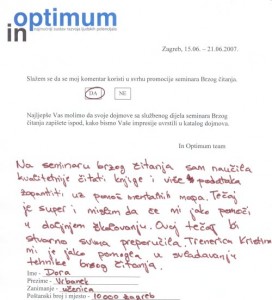 optimum
in
Zagreb, 15.06. – 21.06.2007.
Slažem se da se moj komentar koristi u svrhu promocije seminara Brzog čitanja.
DA
NE
Najljepše Vas molimo da svoje dojmove sa službenog dijela seminara Brzog
čitanja zapišete ispod, kako bismo Vaše impresije uvrstili u katalog dojmova.
In Optimum team
Na seminaru brzog čitanja sam naučila
kvalitetnije čitati knjige i više podataka
zapamtiti uz pomoć mentalnih mapa. Tečaj
je super i mislim da će mi jako pomoći
u daljnjem školovanju. Ovaj tečaj bi
stvarno svima preporučila. Trenerica Kristina
mi je jako pomogla u svladavanju
tehnike brzog čitanja.
Ime - Dora
Prezime - Vrbanek
Zanimanje - učenica
Poštanski broj i mjesto - 10000 Zagreb